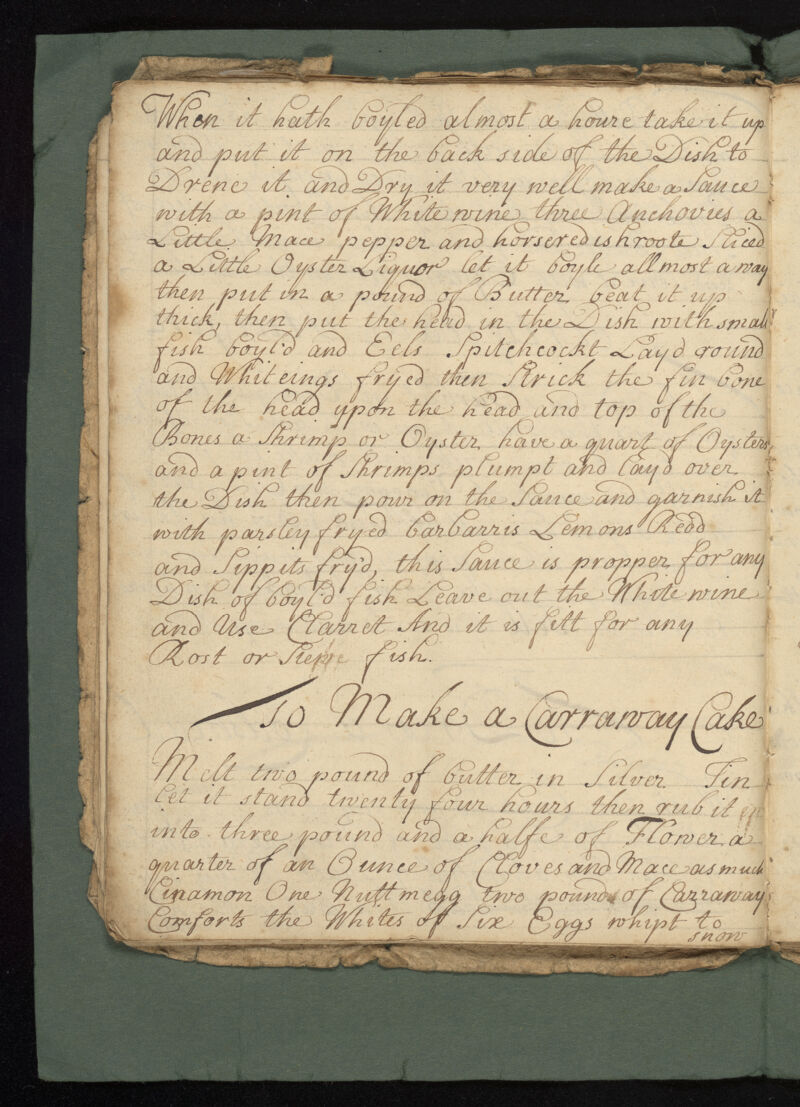 When it hath boyled almost a houre take it up
and put it on the back side of the Dish to
Drene it and Dry it very well make a Sauce
with a pint of White wine three Anchovies a
Little Mace pepper and horseredishroote Sliced
a Little Oyster Liquor let it boyle allmost away
then put in a pound of Butter beat it up
thick, then put the head in the Dish with small
fish boyl'd and Eels Spitchcockt Lay'd round
and Whiteings fryed then Strick the fin bone
of the head upon the head and top of the
Bones a Shrimp or Oyster have a quart of Oysters
and a pint of Shrimps plumpt and lay'd over
the Dish then pour on the Sauce and garnish it
with parsley fryed barbarris Lemons Redd
and Sippits fry'd, this Sauce is propper for any
Dish of boyl'd fish Leave out the White wine
and Use Clarret And it is fitt for any
Rost or fish.
To Make a Carraway Cake
Melt two pound of butter in Silver Tin
let it stand twenty four hours then rub it
into three pound and a halfe of Flower a
quarter of an Ounce of Cloves and Mace as much
Cinamon One Nuttmegg two pound of Carraway
Comforts the Whites of Six Eggs whipt to
snow